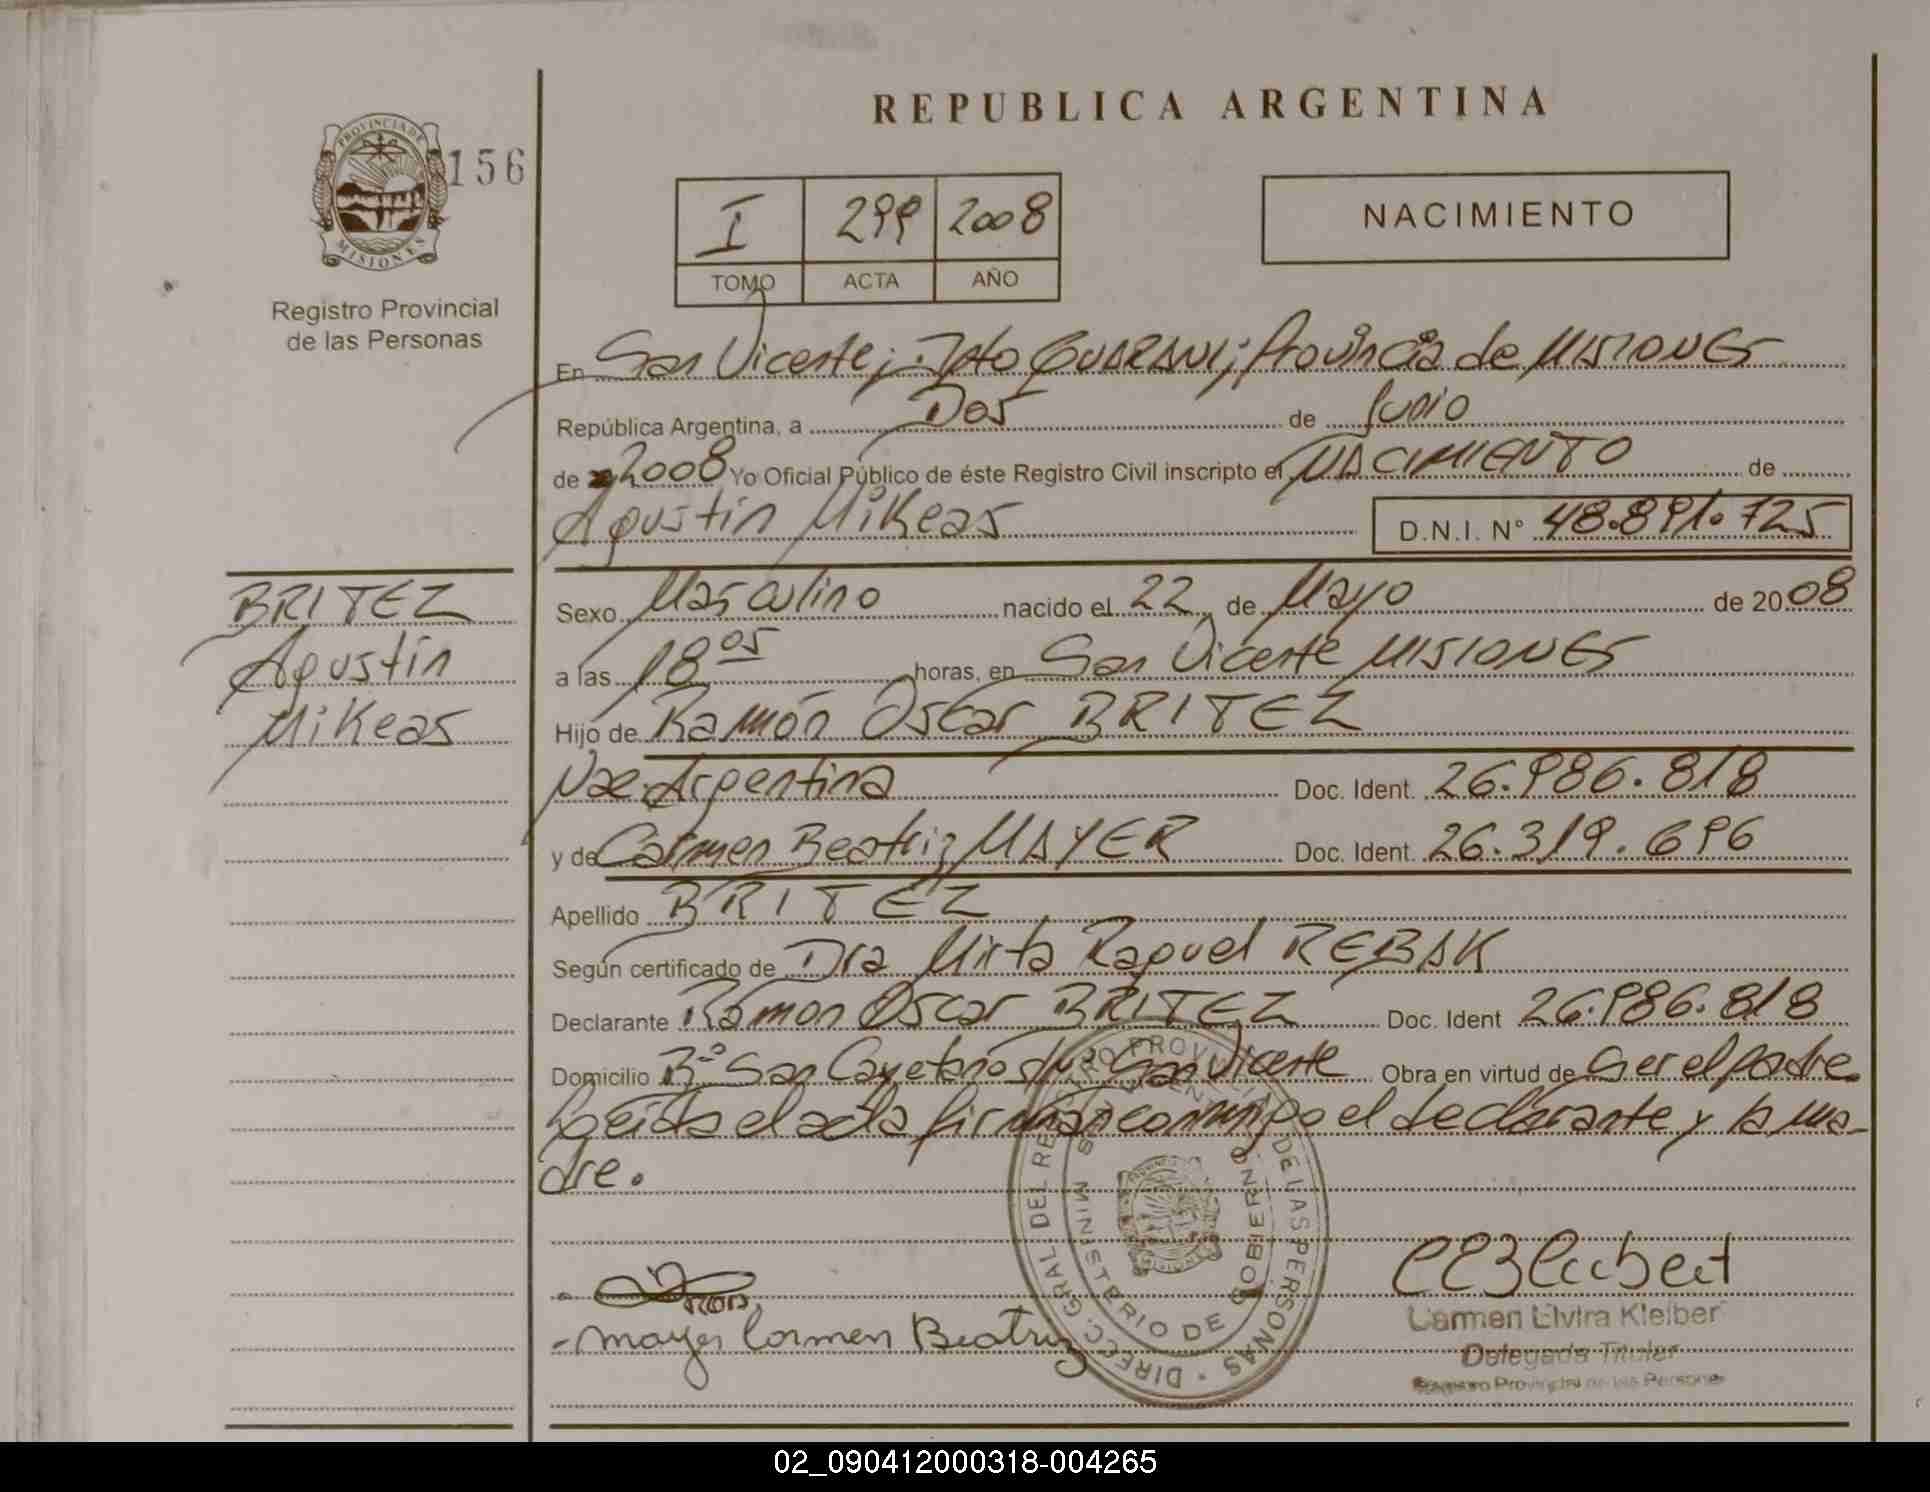 REPUBLICA ARGENTINA
PROVINCIA DE MISIONES
156
Registro Provincial
de las Personas
I 299 2008
TOMO ACTA AÑO
NACIMIENTO
En San Vicente; Dpto GUARANI; Provincia de MISIONES
República Argentina, a Dos de Junio
de 2008 Yo Oficial Público de éste Registro Civil inscripto el NACIMIENTO de
Agustin Mikeas D.N.I. N° 48.891.725
BRITEZ
Agustin
Mikeas
Sexo Masculino nacido el 22 de Mayo de 2008
a las 18 05 horas, en San Vicente MISIONES
Hijo de Ramón Oscar BRITEZ
Nac. Argentina Doc. Ident. 26.986.818
y de Carmen Beatriz MAYER Doc. Ident. 26.319.696
Apellido BRITEZ
Según certificado de Dra Mirta Raquel REBAK
Declarante Ramon Oscar BRITEZ Doc. Ident 26.986.818
Domicilio B° San Cayetano San Vicente Obra en virtud de Ser el padre.
Leida el acta firman conmigo el declarante y la ma-
dre.
DIRECC. GRAL DEL REGISTRO PROVINCIAL DE LAS PERSONAS
MINISTERIO DE GOBIERNO
MISIONES
- mayer Carmen Beatriz
Carmen Elvira Kleiber
Delegada Titular
Registro Provincial de las Personas
02_090412000318-004265